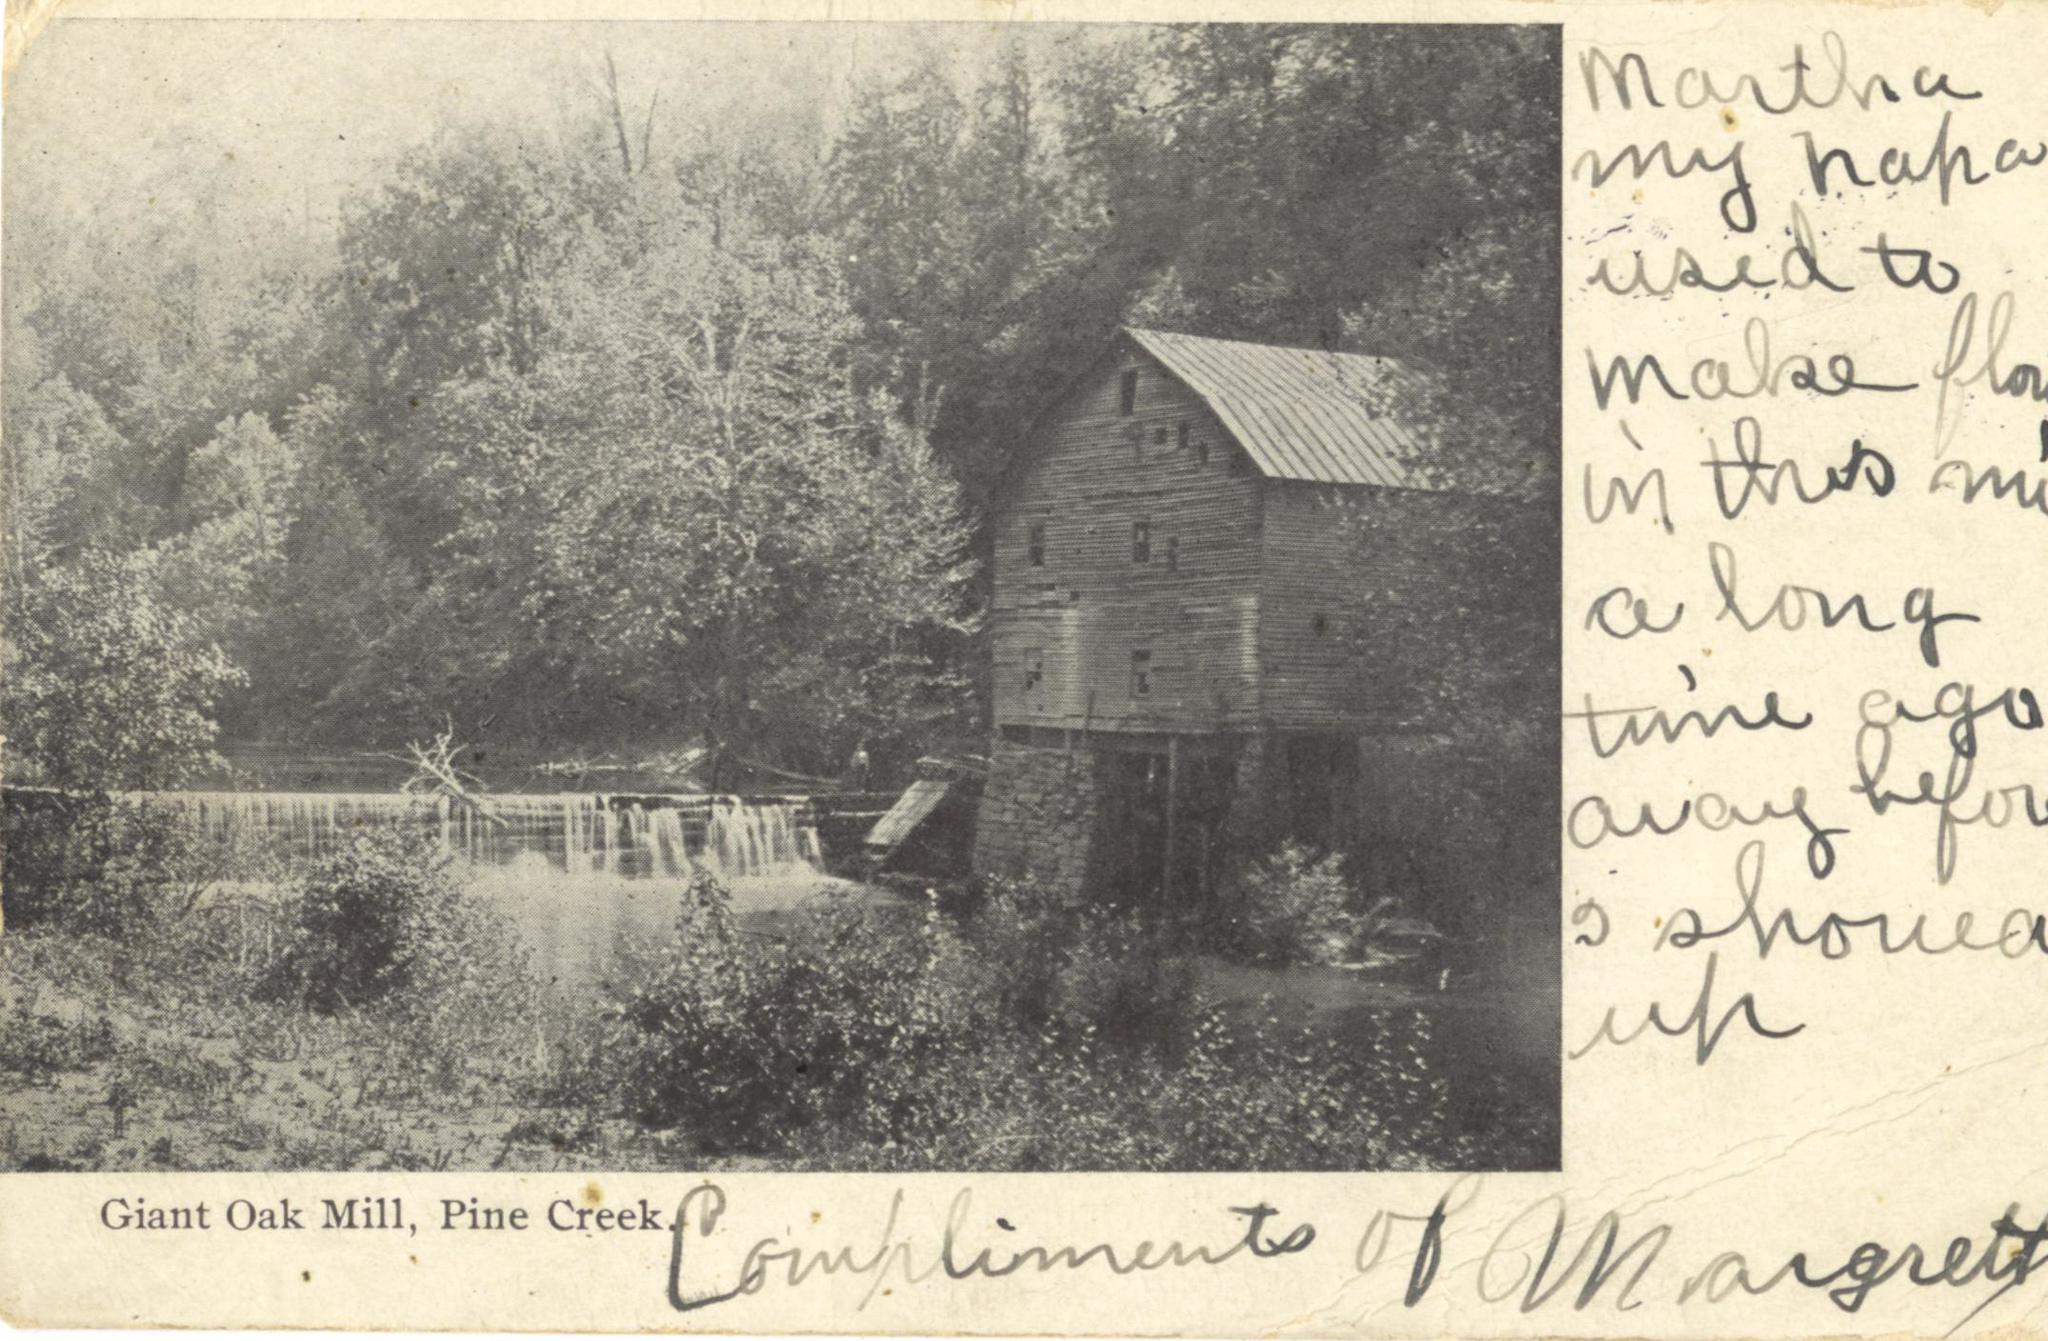 Martha
my papa
used to
make flou
in this mi
a long
time ago
away befor
I showed
up
Giant Oak Mill, Pine Creek.
Compliments of Margrett